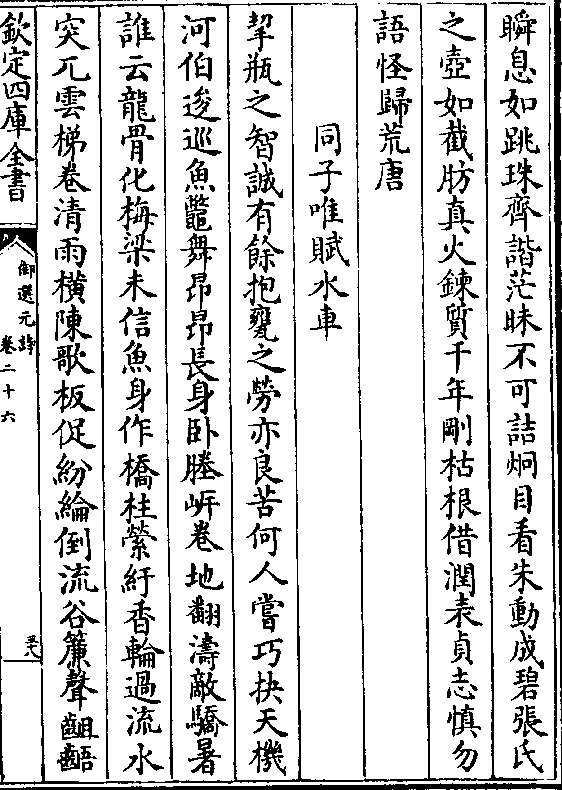 瞬息如跳珠齊諧茫昧不可詰炯目看朱動成碧張氏
之壺如截肪真火鍊質千年剛枯根借潤表貞志慎勿
語怪歸荒唐
同子唯賦水車
挈瓶之智誠有餘抱甕之勞亦良苦何人嘗巧抉天機
河伯逡巡魚鼈舞昂昂長身卧塍㟁卷地翻濤敵驕暑
誰云龍骨化梅梁未信魚身作橋柱縈紆香輪過流水
突兀雲梯卷清雨橫陳歌板促紛綸倒流谷簾聲齟齬
欽定四庫全書
御選元詩
卷二十六